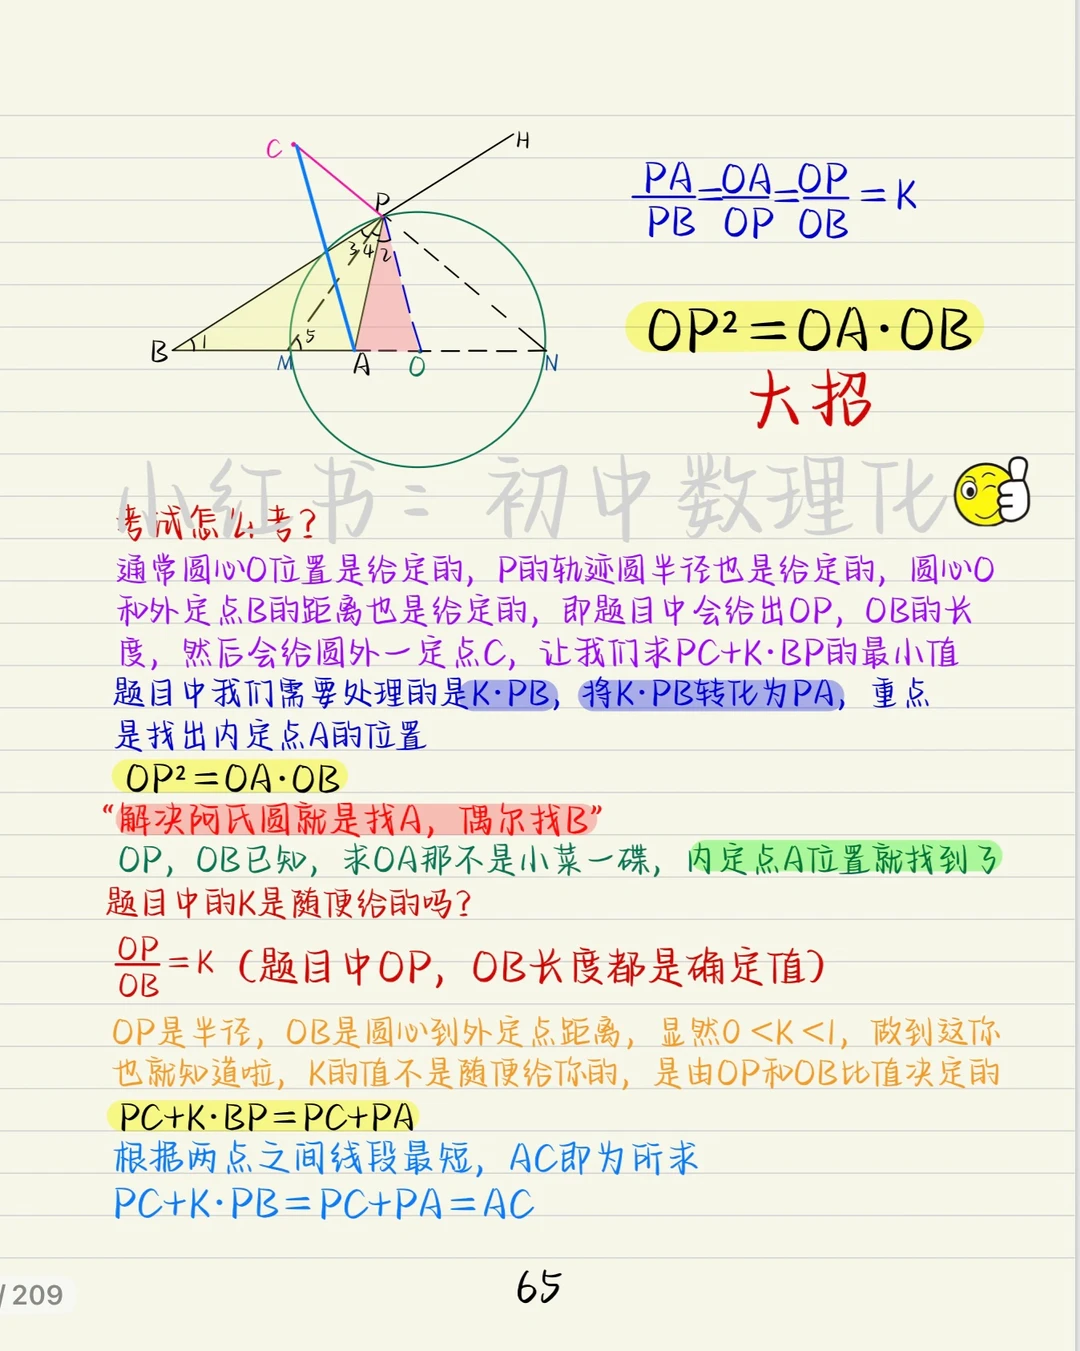 C
H
P
3 4 2
B 1
M 5
A
O
N
PA/PB=OA/OP=OP/OB=K
OP²=OA·OB
大招
小红书：初中数理化
考试怎么考?
通常圆心O位置是给定的，P的轨迹圆半径也是给定的，圆心O
和外定点B的距离也是给定的，即题目中会给出OP，OB的长
度，然后会给圆外一定点C，让我们求PC+K·BP的最小值
题目中我们需要处理的是K·PB，将K·PB转化为PA，重点
是找出内定点A的位置
OP²=OA·OB
“解决阿氏圆就是找A，偶尔找B”
OP，OB已知，求OA那不是小菜一碟，内定点A位置就找到了
题目中的K是随便给的吗?
OP/OB=K（题目中OP，OB长度都是确定值）
OP是半径，OB是圆心到外定点距离，显然0<K<1，做到这你
也就知道啦，K的值不是随便给你的，是由OP和OB比值决定的
PC+K·BP=PC+PA
根据两点之间线段最短，AC即为所求
PC+K·PB=PC+PA=AC
65
/209